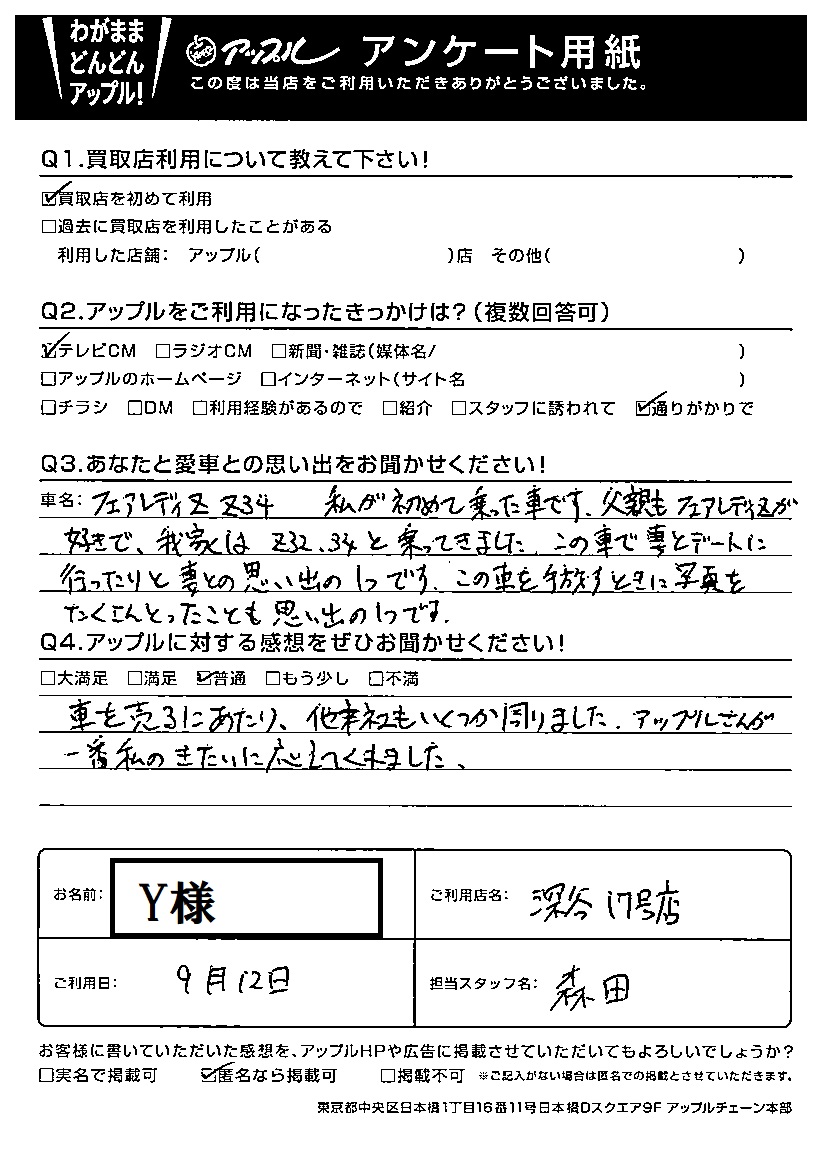 わがまま
どんどん
アップル!
アップル アンケート用紙
この度は当店をご利用いただきありがとうございました。
Q1.買取店利用について教えて下さい!
☑買取店を初めて利用
□過去に買取店を利用したことがある
利用した店舗: アップル( )店 その他( )
Q2.アップルをご利用になったきっかけは?(複数回答可)
☑テレビCM □ラジオCM □新聞・雑誌(媒体名/ )
□アップルのホームページ □インターネット(サイト名 )
□チラシ □DM □利用経験があるので □紹介 □スタッフに誘われて ☑通りがかりで
Q3.あなたと愛車との思い出をお聞かせください!
車名: フェアレディZ Z34 私が初めて乗った車です。父親もフェアレディZが
好きで、我家はZ32、34と乗ってきました。この車で妻とデートに
行ったりと妻との思い出の1つです。この車を手放すときに写真を
たくさんとったことも思い出の1つです。
Q4.アップルに対する感想をぜひお聞かせください!
□大満足 □満足 ☑普通 □もう少し □不満
車を売るにあたり、他社もいくつか周りました。アップルさんが
一番私のきたいに応えてくれました、
お名前: Y様
ご利用店名: 深谷17号店
ご利用日: 9月12日
担当スタッフ名: 森田
お客様に書いていただいた感想を、アップルHPや広告に掲載させていただいてもよろしいでしょうか?
□実名で掲載可 ☑匿名なら掲載可 □掲載不可 ※ご記入がない場合は匿名での掲載とさせていただきます。
東京都中央区日本橋1丁目16番11号日本橋Dスクエア9F アップルチェーン本部